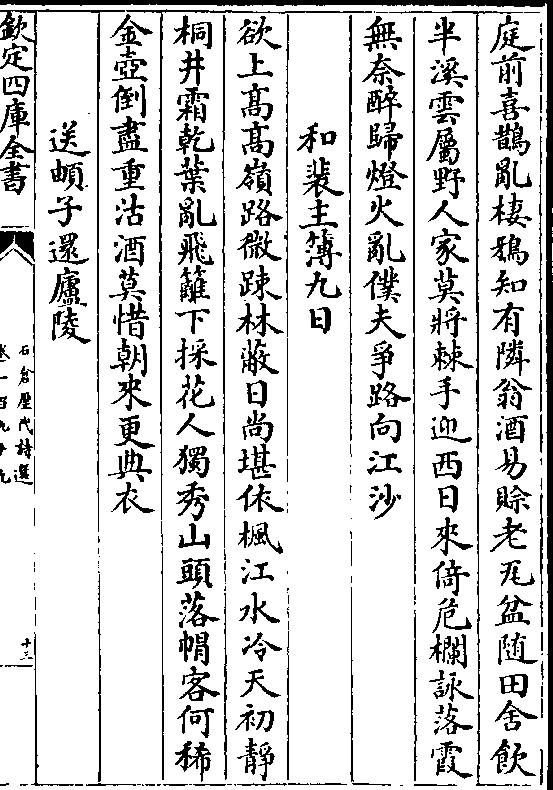 庭前喜鵲亂棲鴉知有隣翁酒易賒老瓦盆随田舍飲
半溪雲屬野人家莫將棘手迎西日來倚危欄詠落霞
無奈醉歸燈火亂僕夫爭路向江沙
和裴主簿九日
欲上髙髙嶺路微踈林蔽日尚堪依楓江水冷天初靜
桐井霜乾葉亂飛籬下採花人獨秀山頭落帽客何稀
金壺倒盡重沽酒莫惜朝來更典衣
送頔子還廬陵
欽定四庫全書
石倉歴代詩選
十三